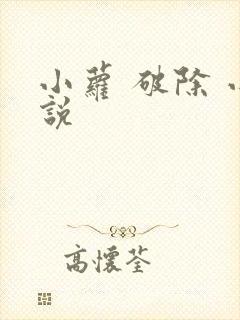 小蘿 破除
說
高懷荃